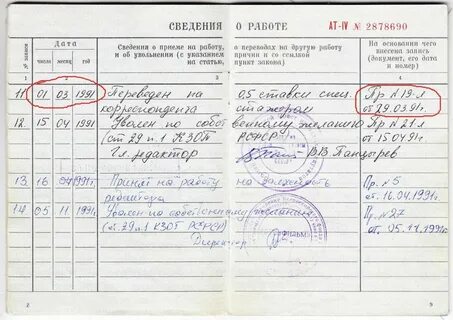 СВЕДЕНИЯ О РАБОТЕ
АТ-IV № 2878690
Дата
число месяц год
Сведения о приеме на работу, о переводах на другую работу и об увольнении (с указанием причин и со ссылкой на статью, пункт закона)
На основании чего внесена запись (документ, его дата и номер)
1 2 3 4
11. 01 03 1991 Переведен на 0,5 ставки спец. Пр №19-л
корреспондента стажером от 29.03.91г.
12. 15 04 1991 Уволен по собственному желанию Пр №21-л
(ст 29 п 1 КЗОТ РСФСР от 15.04.91г
Гл. редактор В.В. Панцырев
13. 16 04 1991г. Принят на работу на должность Пр. №5
редактора от 16.04.1991г.
14. 05 11 1991г. Уволен по собственному желанию Пр. №27
(ст. 29 п 1 КЗОТ РСФСР) от 05.11.1991г.
Директор